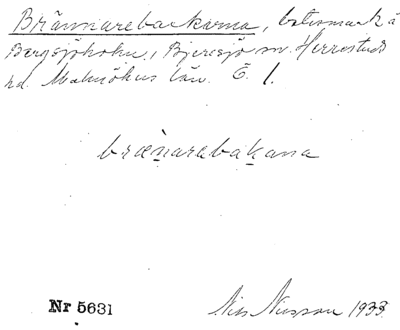 Brännarebackarna, betesmark å
Bergsjöholm, Bjeresjö sn. Herrestads
hd. Malmöhus län. E. 1.
brænarebakana
Nr 5631
Nils Nilsson 1933